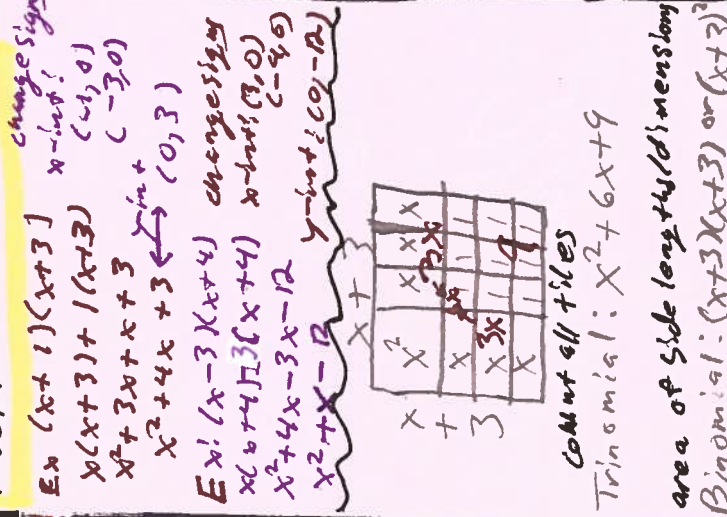 change sign
Ex (x+1)(x+3) x-int:
x(x+3)+1(x+3) (-1,0)
x²+3x+x+3 (-3,0)
x²+4x+3 y-int (0,3)
Ex: (x-3)(x+4) change signs
x(x+4)-3(x+4) x-int: (3,0)
x²+4x-3x-12 (-4,0)
x²+x-12 y-int: (0,-12)
x + 3
x + 3
x² x x x
3x
x 1 1 1
x 1 1 1
x 1 1 1
3x
9
count all tiles
Trinomial: x²+6x+9
area of side lengths/dimensions
Binomial: (x+3)(x+3) or (x+3)²